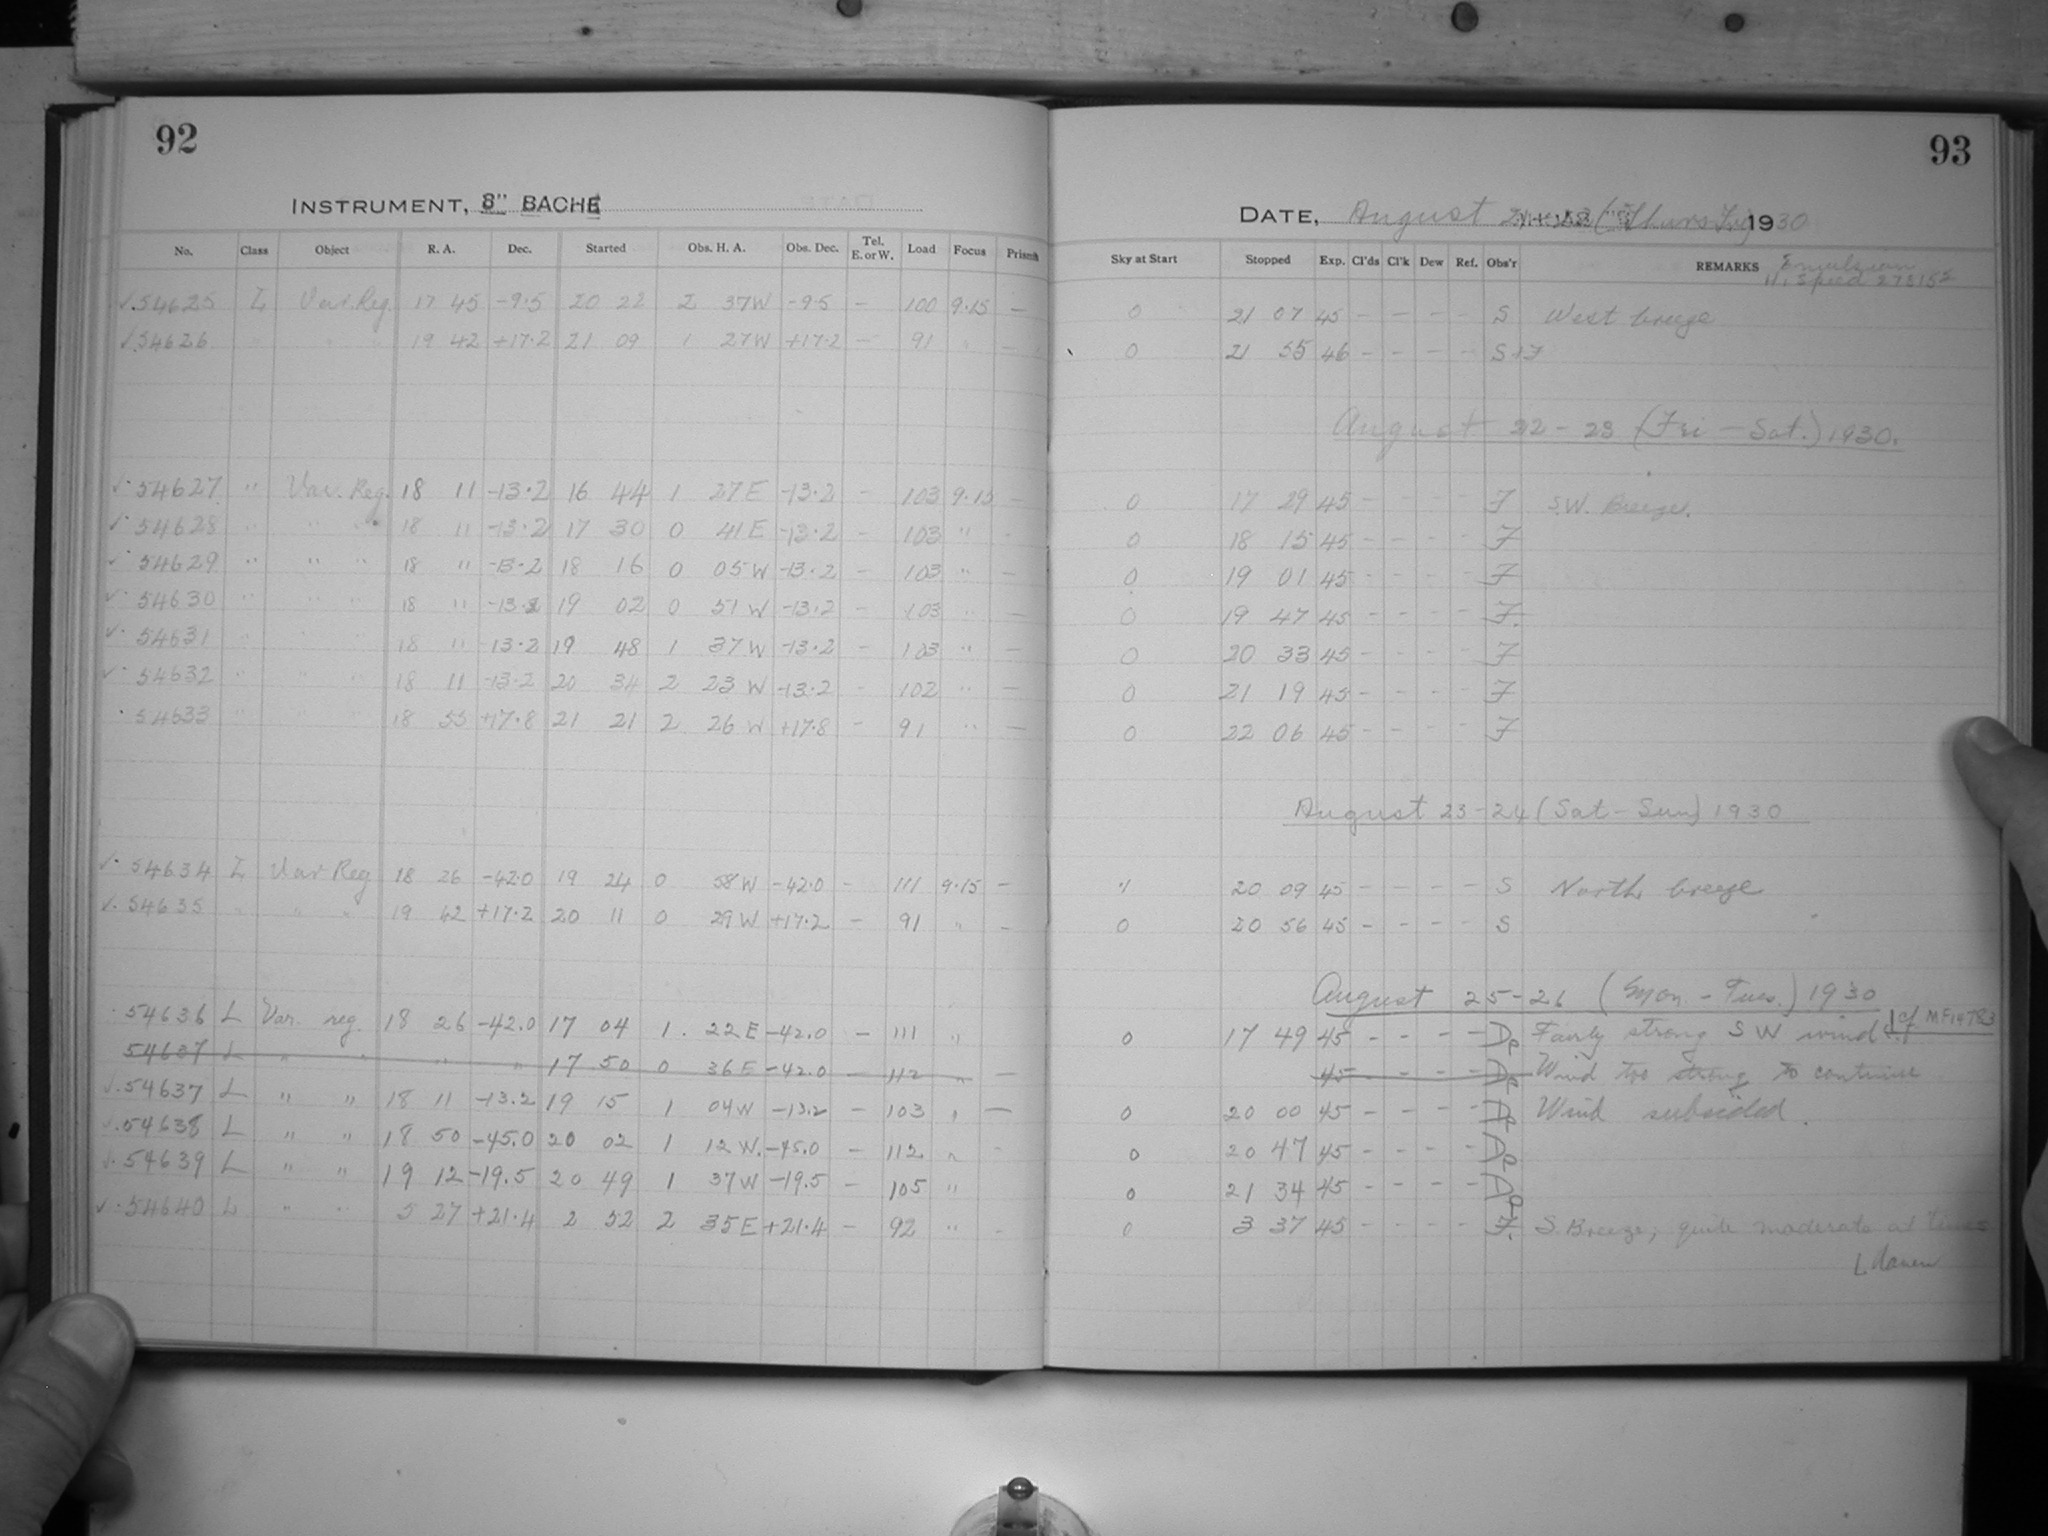 92
INSTRUMENT, 8" BACHE
No. Class Object R. A. Dec. Started Obs. H. A. Obs. Dec. Tel. E. or W. Load Focus Prism
✓.54625 L Var. Reg. 17 45 -9.5 20 22 2 37W -9.5 - 100 9.15 -
✓.54626 " " " 19 42 +17.2 21 09 1 27W +17.2 - 91 " -
✓.54627 " Var. Reg. 18 11 -13.2 16 44 1 27E -13.2 - 103 9.15 -
✓.54628 " " " 18 11 -13.2 17 30 0 41E -13.2 - 103 " -
✓.54629 " " " 18 11 -13.2 18 16 0 05W -13.2 - 103 " -
✓.54630 " " " 18 11 -13.2 19 02 0 51W -13.2 - 103 " -
✓.54631 " " " 18 11 -13.2 19 48 1 37W -13.2 - 103 " -
✓.54632 " " " 18 11 -13.2 20 34 2 23W -13.2 - 102 " -
.54633 " " " 18 55 +17.8 21 21 2 26W +17.8 - 91 " -
✓.54634 L Var Reg 18 26 -42.0 19 24 0 58W -42.0 - 111 9.15 -
✓.54635 " " " 19 42 +17.2 20 11 0 29W +17.2 - 91 " -
.54636 L Var. reg. 18 26 -42.0 17 04 1. 22E -42.0 - 111 "
54637 L " " " " 17 50 0 36E -42.0 - 112 " -
✓.54637 L " " 18 11 -13.2 19 15 1 04W -13.2 - 103 " -
✓.54638 L " " 18 50 -45.0 20 02 1 12W. -45.0 - 112 " -
✓.54639 L " " 19 12 -19.5 20 49 1 37W -19.5 - 105 "
✓.54640 L " " 5 27 +21.4 2 52 2 35E +21.4 - 92 " -
93
DATE, August (Thurs Fri) 1930
Sky at Start Stopped Exp. Cl'ds Cl'k Dew Ref. Obs'r REMARKS Emulsion
Speed 273152
0 21 07 45 - - - - S West breeze
0 21 55 46 - - - - S+F
August 22-23 (Fri - Sat.) 1930.
0 17 29 45 - - - - F S.W. Breeze.
0 18 15 45 - - - - F
0 19 01 45 - - - - F
0 19 47 45 - - - - F.
0 20 33 45 - - - - F
0 21 19 45 - - - - F
0 22 06 45 - - - - F
August 23-24 (Sat-Sun) 1930
20 09 45 - - - - S North breeze
0 20 56 45 - - - - S
August 25-26 (Mon - Tues.) 1930
0 17 49 45 - - - - De Fairly strong S W wind cf MF14783
45 - - - - De Wind too strong to continue
0 20 00 45 - - - - Wind subsided.
0 20 47 45 - - - -
0 21 34 45 - - - -
0 3 37 45 - - - - F. S. Breeze, quite moderate at times